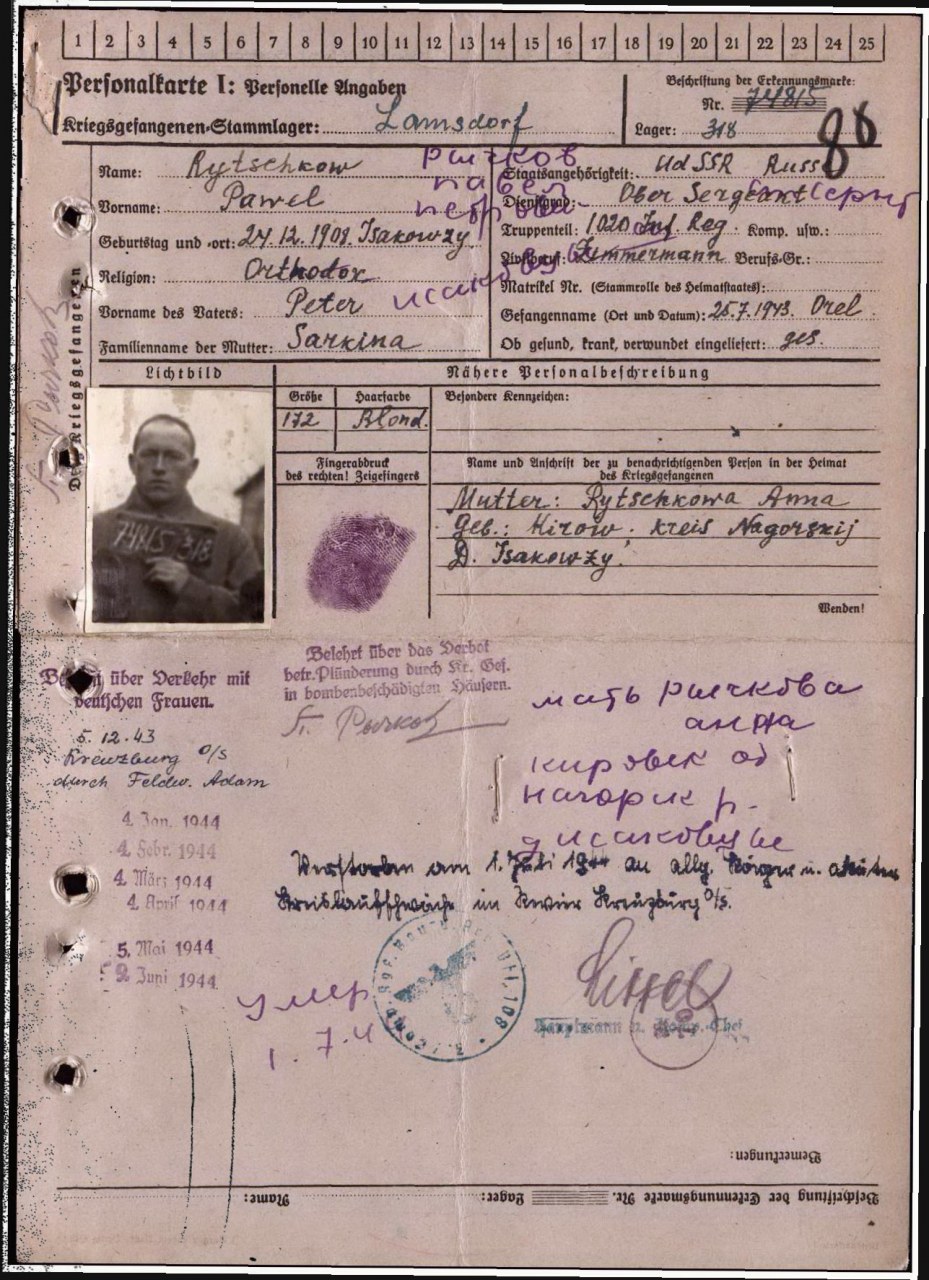 1 2 3 4 5 6 7 8 9 10 11 12 13 14 15 16 17 18 19 20 21 22 23 24 25
Personalkarte I: Personelle Angaben
Kriegsgefangenen-Stammlager: Lamsdorf
Beschriftung der Erkennungsmarke:
Nr. 74815
Lager: 318
88
Name: Rytschkow
Рычков
Vorname: Pawel
павел
Geburtstag und -ort: 24.12.1909. Isakowzy
Religion: Orthodox
Vorname des Vaters: Peter
Familienname der Mutter: Sarkina
Staatsangehörigkeit: UdSSR Russe
Dienstgrad: Ober Sergeant
Truppenteil: 1020 Inf. Reg. Komp. usw.:
Zivilberuf: Zimmermann Berufs-Gr.:
Matrikel Nr. (Stammrolle des Heimatstaates):
Gefangenname (Ort und Datum): 25.7.1943. Orel
Ob gesund, krank, verwundet eingeliefert: ges.
Des Kriegsgefangenen
П. Рычков
Lichtbild
Nähere Personalbeschreibung
Größe
Haarfarbe
172
Blond.
Besondere Kennzeichen:
Fingerabdruck
des rechten! Zeigefingers
Name und Anschrift der zu benachrichtigenden Person in der Heimat
des Kriegsgefangenen
Mutter: Rytschkowa Anna
Geb.: Kirow, Kreis Nagorskij
D. Isakowzy.
74815 318
Wenden!
über Verkehr mit
deutschen Frauen.
5.12.43
Kreuzburg O/S
durch Feldw. Adam
Belehrt über das Verbot
betr. Plünderung durch Kr. Gef.
in bombenbeschädigten Häusern.
П. Рычков
мать рычкова
анна
нагорск р-
4. Jan. 1944
4. Febr. 1944
4. März 1944
4. April 1944
5. Mai 1944
2. Juni 1944
Verstorben am 1. Juli 1944 an allg. Körper u. akuter
Kreislaufschwäche im Revier Kreuzburg O/S.
умер
1.7.4
Hauptmann u. Komp.-Chef
Bemerkungen:
Beschriftung der Erkennungsmarke Nr. Lager: Name: